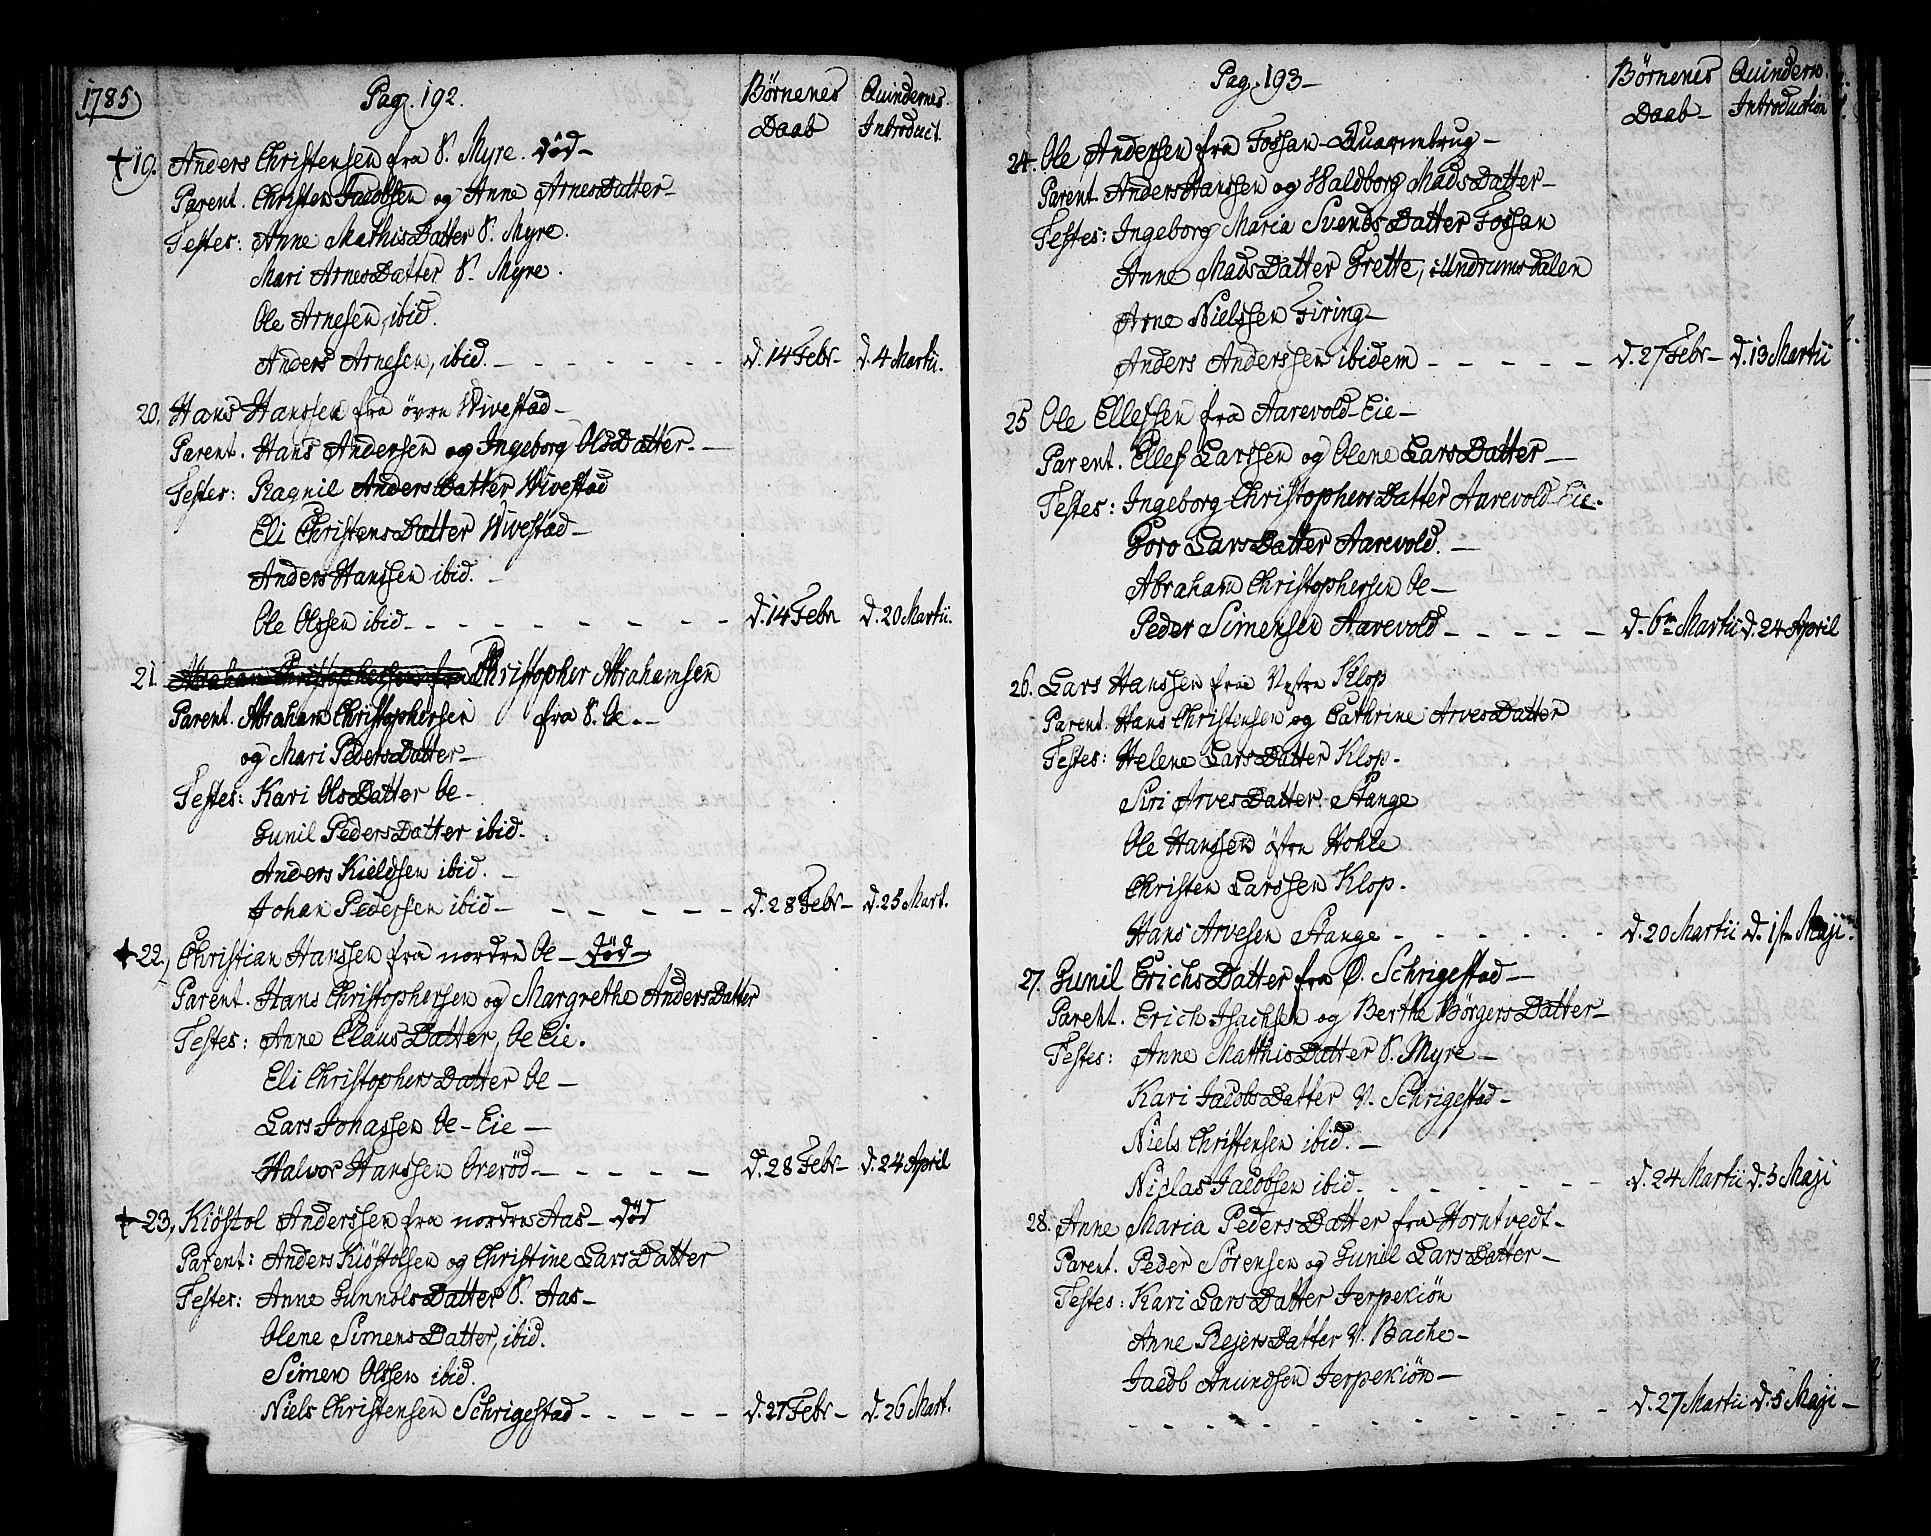 1785
Pag. 192.
Börnenes Daab
Quindernes Introduct.
†19. Anders Christensen fra S. Myre. död-
Parent. Christen Jacobsen og Anne ArnesDatter-
Testes: Anne MathisDatter S. Myre.
Mari ArnesDatter S. Myre.
Ole Arnesen, ibid.
Anders Arnesen, ibid. - - - - - - - d. 14 Febr- d. 4 Martii.
20. Hans Hanssen fra övre Wivestad-
Parent. Hans Andersen og Ingeborg OlsDatter. -
Testes: Ragnil AndersDatter Wivestad
Eli ChristensDatter Wivestad-
Anders Hanssen ibid. -
Ole Olssen ibid. - - - - - - - - - d. 14 Febr d. 20 Martii.
21. Abraham Christophersen fra Christopher Abrahamsen
Parent. Abraham Christophersen fra S. Oe. -
og Mari PedersDatter-
Testes: Kari OlsDatter Oe-
Gunil PedersDatter ibid.
Anders Kieldsen ibid. -
Johan Pedersen ibid- - - - - - d. 28 Febr- d. 25 Mart.
†22. Christian Hanssen fra nordre Oe- död-
Parent. Hans Christophersen og Margrethe AndersDatter
Testes: Anne ClausDatter, Oe Eie.
Eli ChristophersDatter Oe-
Lars Jonassen Oe-Eie-
Halvor Hanssen Oreröd- - - - - d. 28 Febr- d. 24 April
†23, Kiöstol Anderssen fra nordre Aas- död
Parent: Anders Kiöstolsen og Christine LarsDatter
Testes: Anne GunnolsDatter S. Aas-
Olene SimensDatter, ibid.
Simen Olssen ibid.
Niels Christensen Schrigestad- - - - - d. 27 Febr- d. 26 Mart.
Pag. 193-
Börnenes Daab-
Introduction
24. Ole Andersen fra Fossan-Quarnebrug-
Parent. Anders Hanssen og Waldborg MadsDatter-
Testes: Ingeborg Maria SvendsDatter Fossan
Anne MadsDatter Grette, i Undrumsdalen
Arne Nielssen Firing-
Anders Anderssen ibidem - - - - - d. 27 Febr- d. 13 Martii
25 Ole Ellefsen fra Aarevold-Eie-
Parent. Ellef Larssen og Olene LarsDatter-
Testes: Ingeborg ChristophersDatter Aarevold-Eie.
Goro LarsDatter Aarevold. -
Abraham Christophersen Oe-
Peder Simensen Aarevold- - - - - d. 6te Martii d. 24 April
26. Lars Hanssen fra Vestre Klop
Parent. Hans Christensen og Cathrine ArvesDatter
Testes: Helene LarsDatter Klop-
Siri ArvesDatter Stange
Ole Hanssen östre Hohle
Christen Larssen Klop.
Hans Arvesen Stange - - - - - - d. 20 Martii d. 1ste Maji.
27. Gunil ErichsDatter fra Ö. Schrigestad-
Parent. Erich Isachsen og Berthe BörgersDatter-
Testes: Anne MatthisDatter S. Myre-
Kari JacobsDatter V. Schrigestad-
Niels Christensen ibid. -
Niclas Jacobsen ibid- - - - - - - d. 24 Martii d. 5 Maji
28. Anne Maria PedersDatter fra Horntvedt-
Parent. Peder Sörensen og Gunil LarsDatter-
Testes: Kari LarsDatter Jerpekiön
Anne RejersDatter V. Bache-
Jacob Amundsen Jerpekiön-
- - - - - - - - - - - - d. 27 Martii d. 5 Maji-